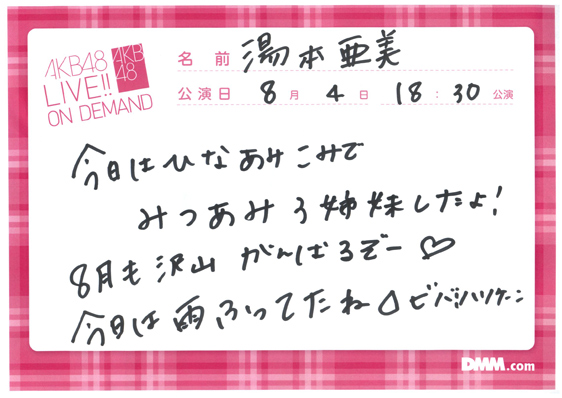 AKB48
LIVE!!
ON DEMAND
AKB
48
名前 湯本亜美
公演日 8月4日 18:30公演
今日はひなあみこみで
みつあみ3姉妹したよ!
8月も沢山がんばるぞー♡
今日は雨ふってたね△
DMM.com